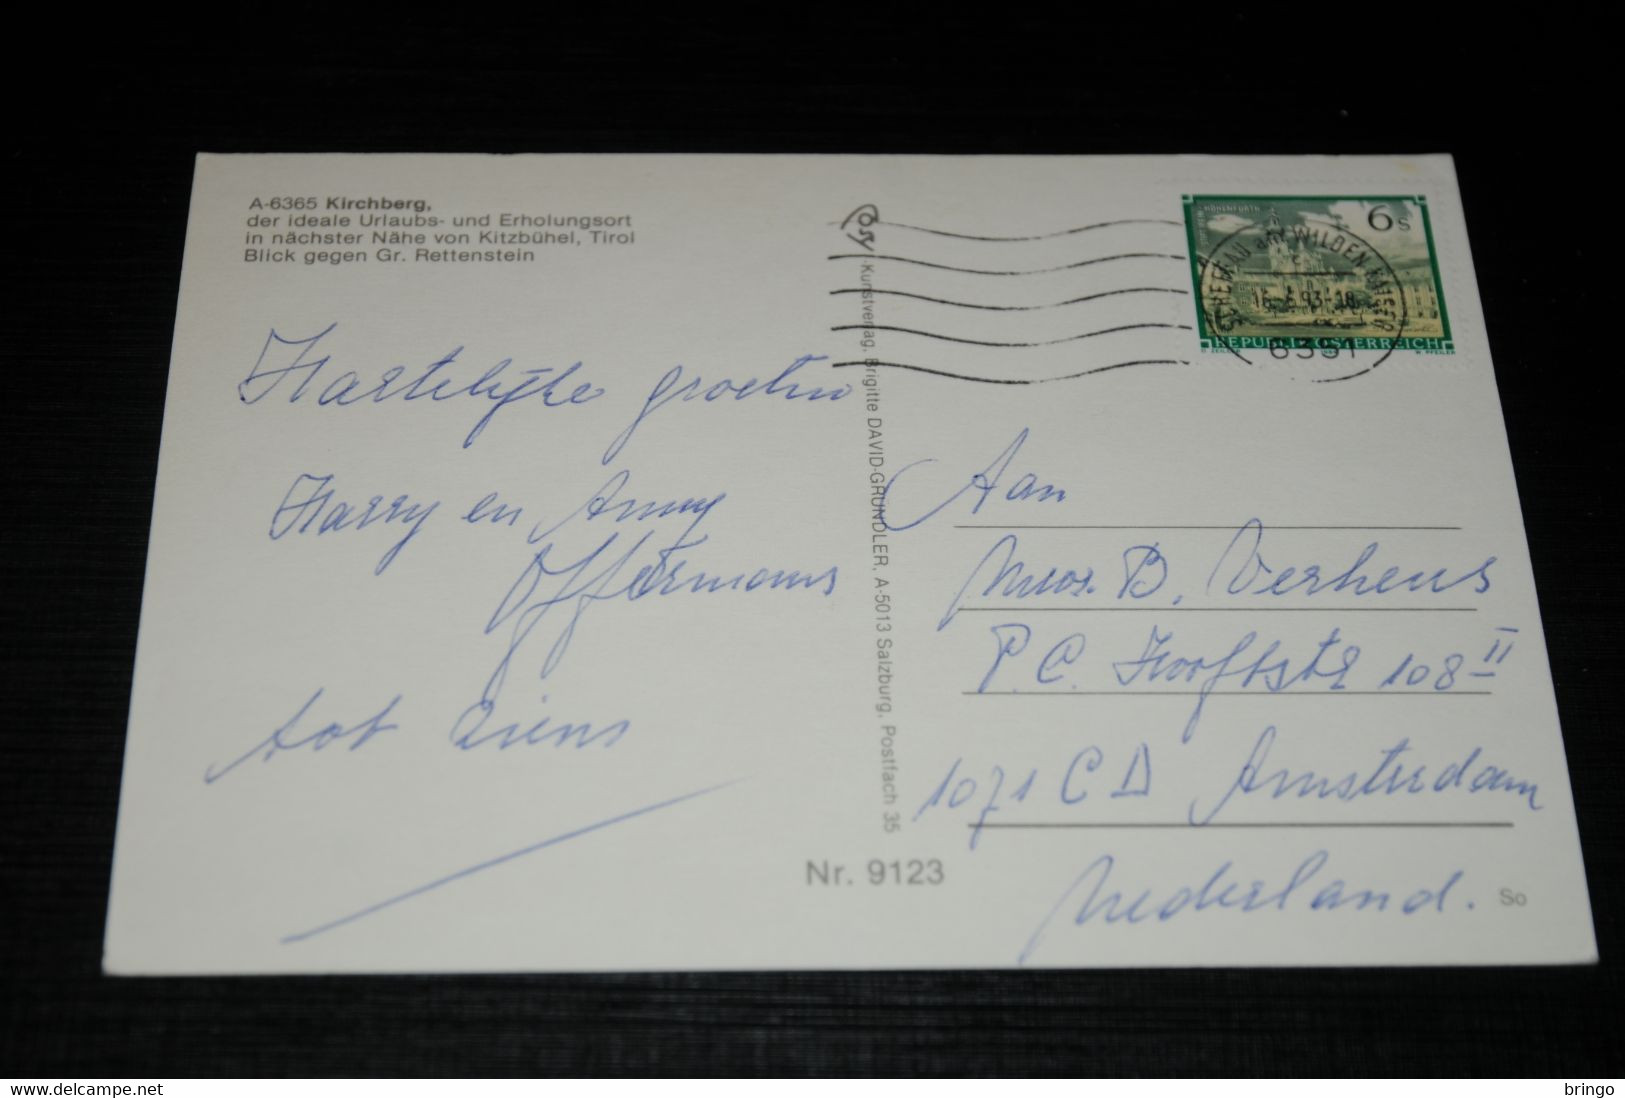 A-6365 Kirchberg,
der ideale Urlaubs- und Erholungsort
in nächster Nähe von Kitzbühel, Tirol
Blick gegen Gr. Rettenstein
Hartelijke groeten
Harry en Anny
Offermans
tot ziens
Cosy Kunstverlag, Brigitte DAVID-GRÜNDLER, A-5013 Salzburg, Postfach 35
Nr. 9123
6s
SCHEFFAU am WILDEN KAISER
93-18
6351
REPUBLIK ÖSTERREICH
W. PFEILER
Aan
Mevr. B. Verheus
P.C. Hooftstr 108 II
1071 CD Amsterdam
Nederland.
So
bringo